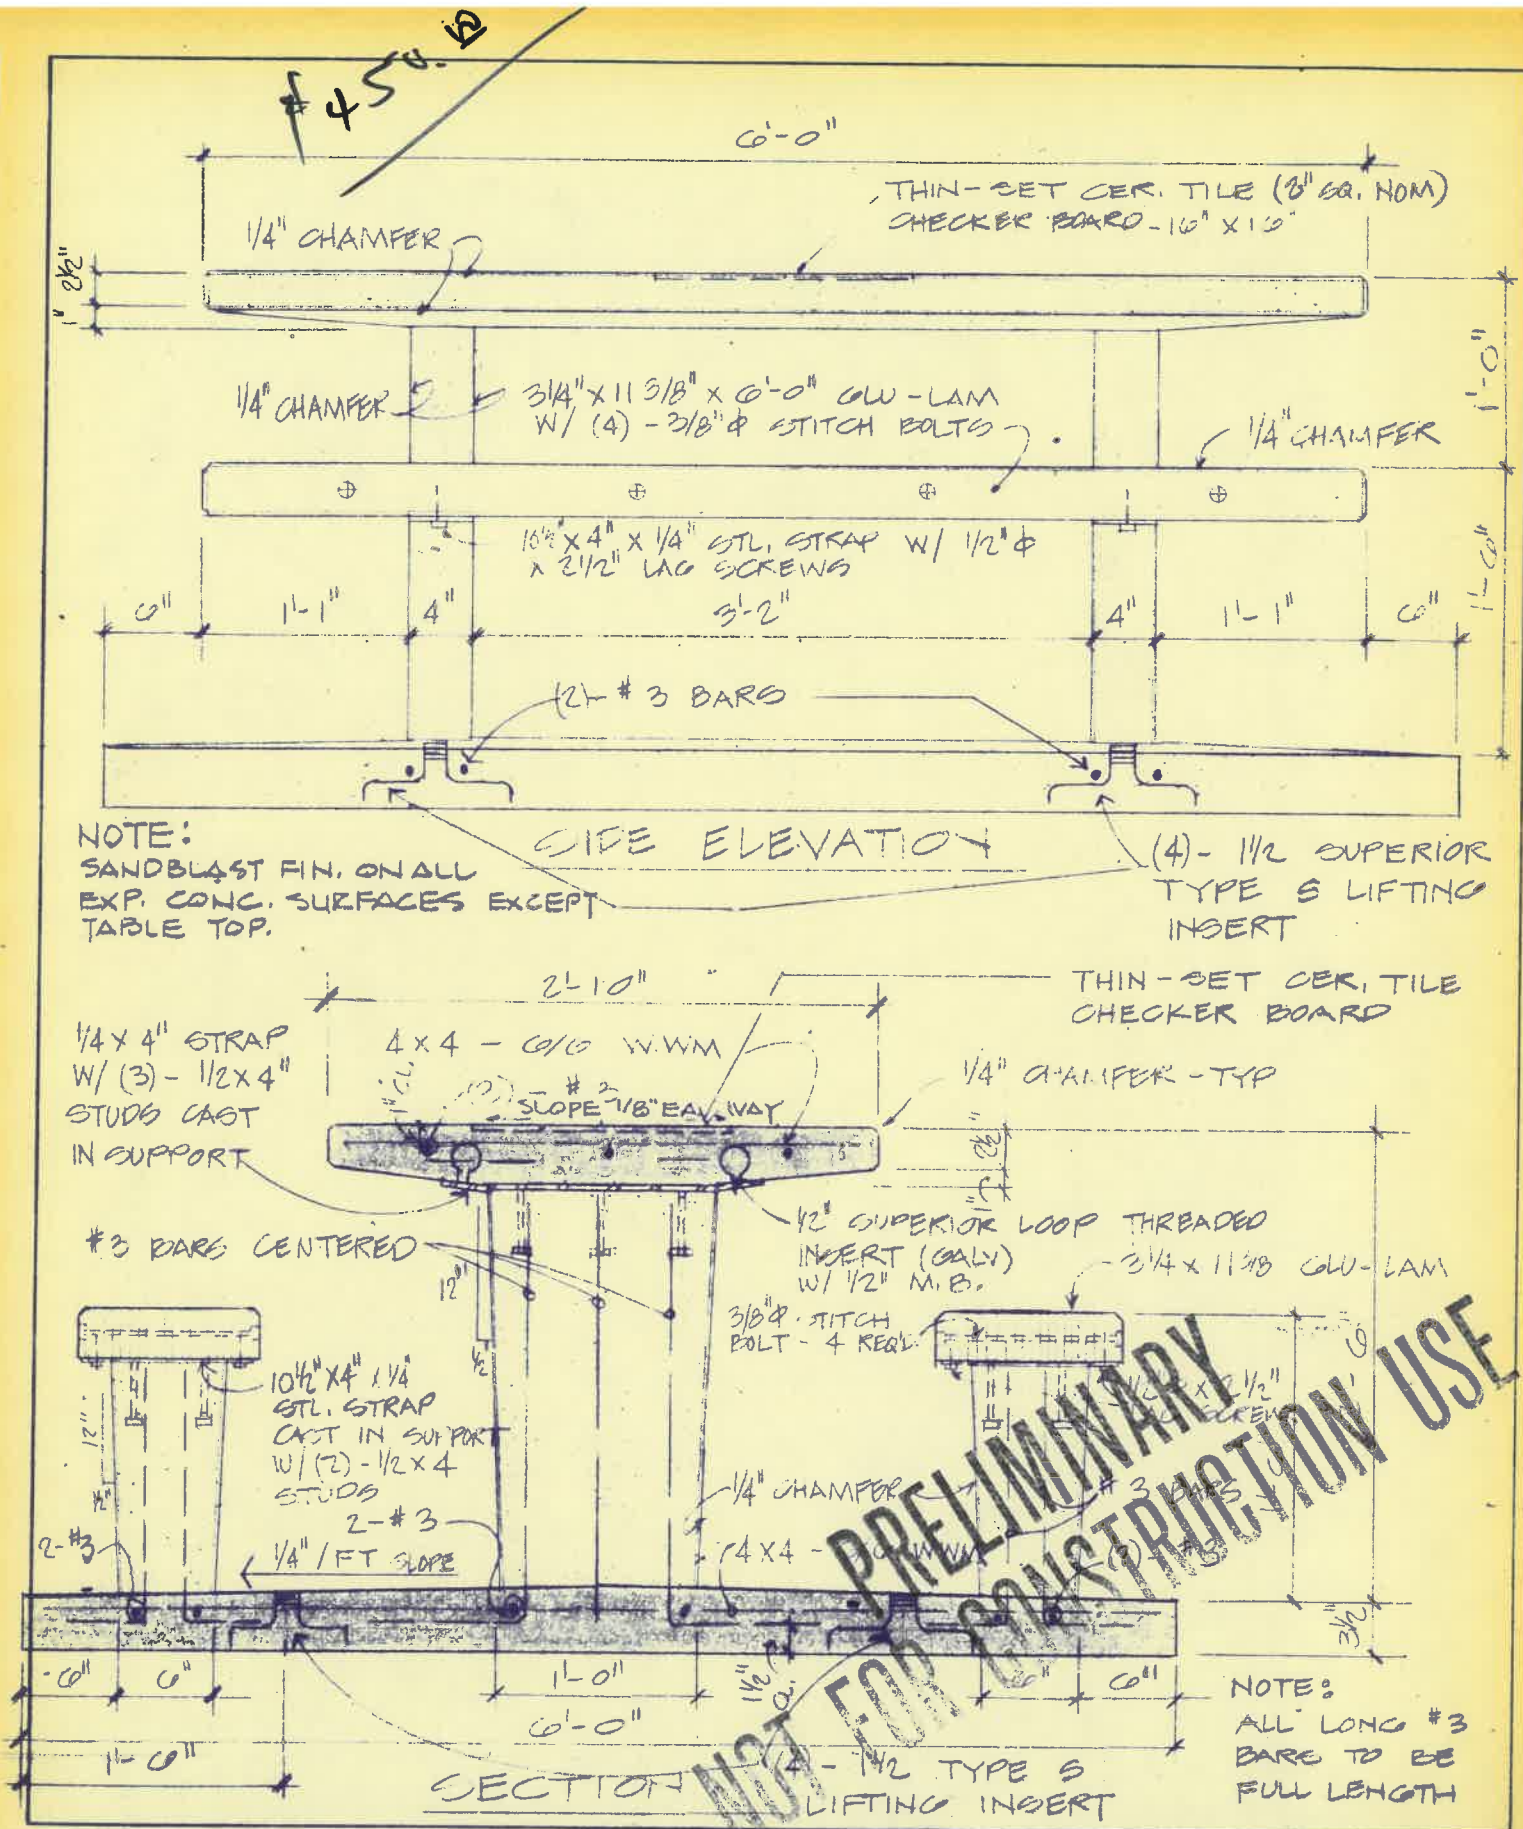 $450.00
6'-0"
THIN-SET CER. TILE (2" SQ. NOM)
CHECKER BOARD - 16" X 16"
1/4" CHAMFER
2½"
1"
1'-0"
1/4" CHAMFER
3 1/4" X 11 3/8" X 6'-0" GLU-LAM
W/ (4) - 3/8" φ STITCH BOLTS
1/4" CHAMFER
10½" X 4" X 1/4" STL. STRAP W/ 1/2" φ
X 2 1/2" LAG SCREWS
1'-6"
6"
1'-1"
4"
3'-2"
4"
1'-1"
6"
(2)- # 3 BARS
SIDE ELEVATION
NOTE:
SANDBLAST FIN. ON ALL
EXP. CONC. SURFACES EXCEPT
TABLE TOP.
(4)- 1 1/2 SUPERIOR
TYPE S LIFTING
INSERT
2'-10"
THIN-SET CER. TILE
CHECKER BOARD
1/4 X 4" STRAP
W/ (3) - 1/2 X 4"
STUDS CAST
IN SUPPORT
4 X 4 - 6/6 W.WM
1/4" CHAMFER - TYP
SLOPE 1/8" EA. WAY
2½"
1"
#3 BARS CENTERED
12"
½
1/2" SUPERIOR LOOP THREADED
INSERT (GALV)
W/ 1/2" M.B.
3 1/4 X 11 3/8 GLU-LAM
3/8" φ STITCH
BOLT - 4 REQ'D.
10½" X 4" X 1/4"
STL. STRAP
CAST IN SUPPORT
W/ (2) - 1/2 X 4
STUDS
12"
½"
2-#3
2-#3
1/4" / FT SLOPE
1/4" CHAMFER
# 3 BARS
4 X 4 -
PRELIMINARY
NOT FOR CONSTRUCTION USE
3½"
6"
6"
1'-0"
1½"
6"
6"
6'-0"
1'-6"
SECTION
4 - 1 1/2 TYPE S
LIFTING INSERT
NOTE:
ALL LONG #3
BARS TO BE
FULL LENGTH